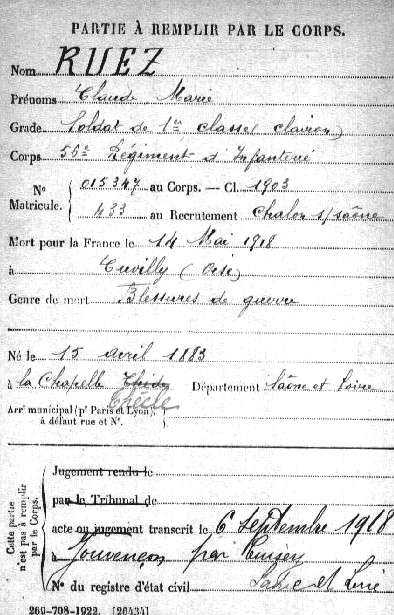 PARTIE À REMPLIR PAR LE CORPS.
Nom RUEZ
Prénoms Claude Marie
Grade Soldat de 1re classe (clairon)
Corps 56e Régiment d'Infanterie
No Matricule. { 015347 au Corps. — Cl. 1903
433 au Recrutement Chalon s/saône
Mort pour la France le 14 Mai 1918
à Cuvilly (Oise)
Genre de mort Blessures de guerre
Né le 15 avril 1883
à la Chapelle Thècle Département Saône et Loire
Arrt municipal (pr Paris et Lyon),
à défaut rue et No.
Cette partie n'est pas à remplir par le Corps.
Jugement rendu le
par le Tribunal de
acte ou jugement transcrit le 6 Septembre 1918
à Jouvençon par Cuisery
No du registre d'état civil Saône et Loire
269-708-1922. [26434]